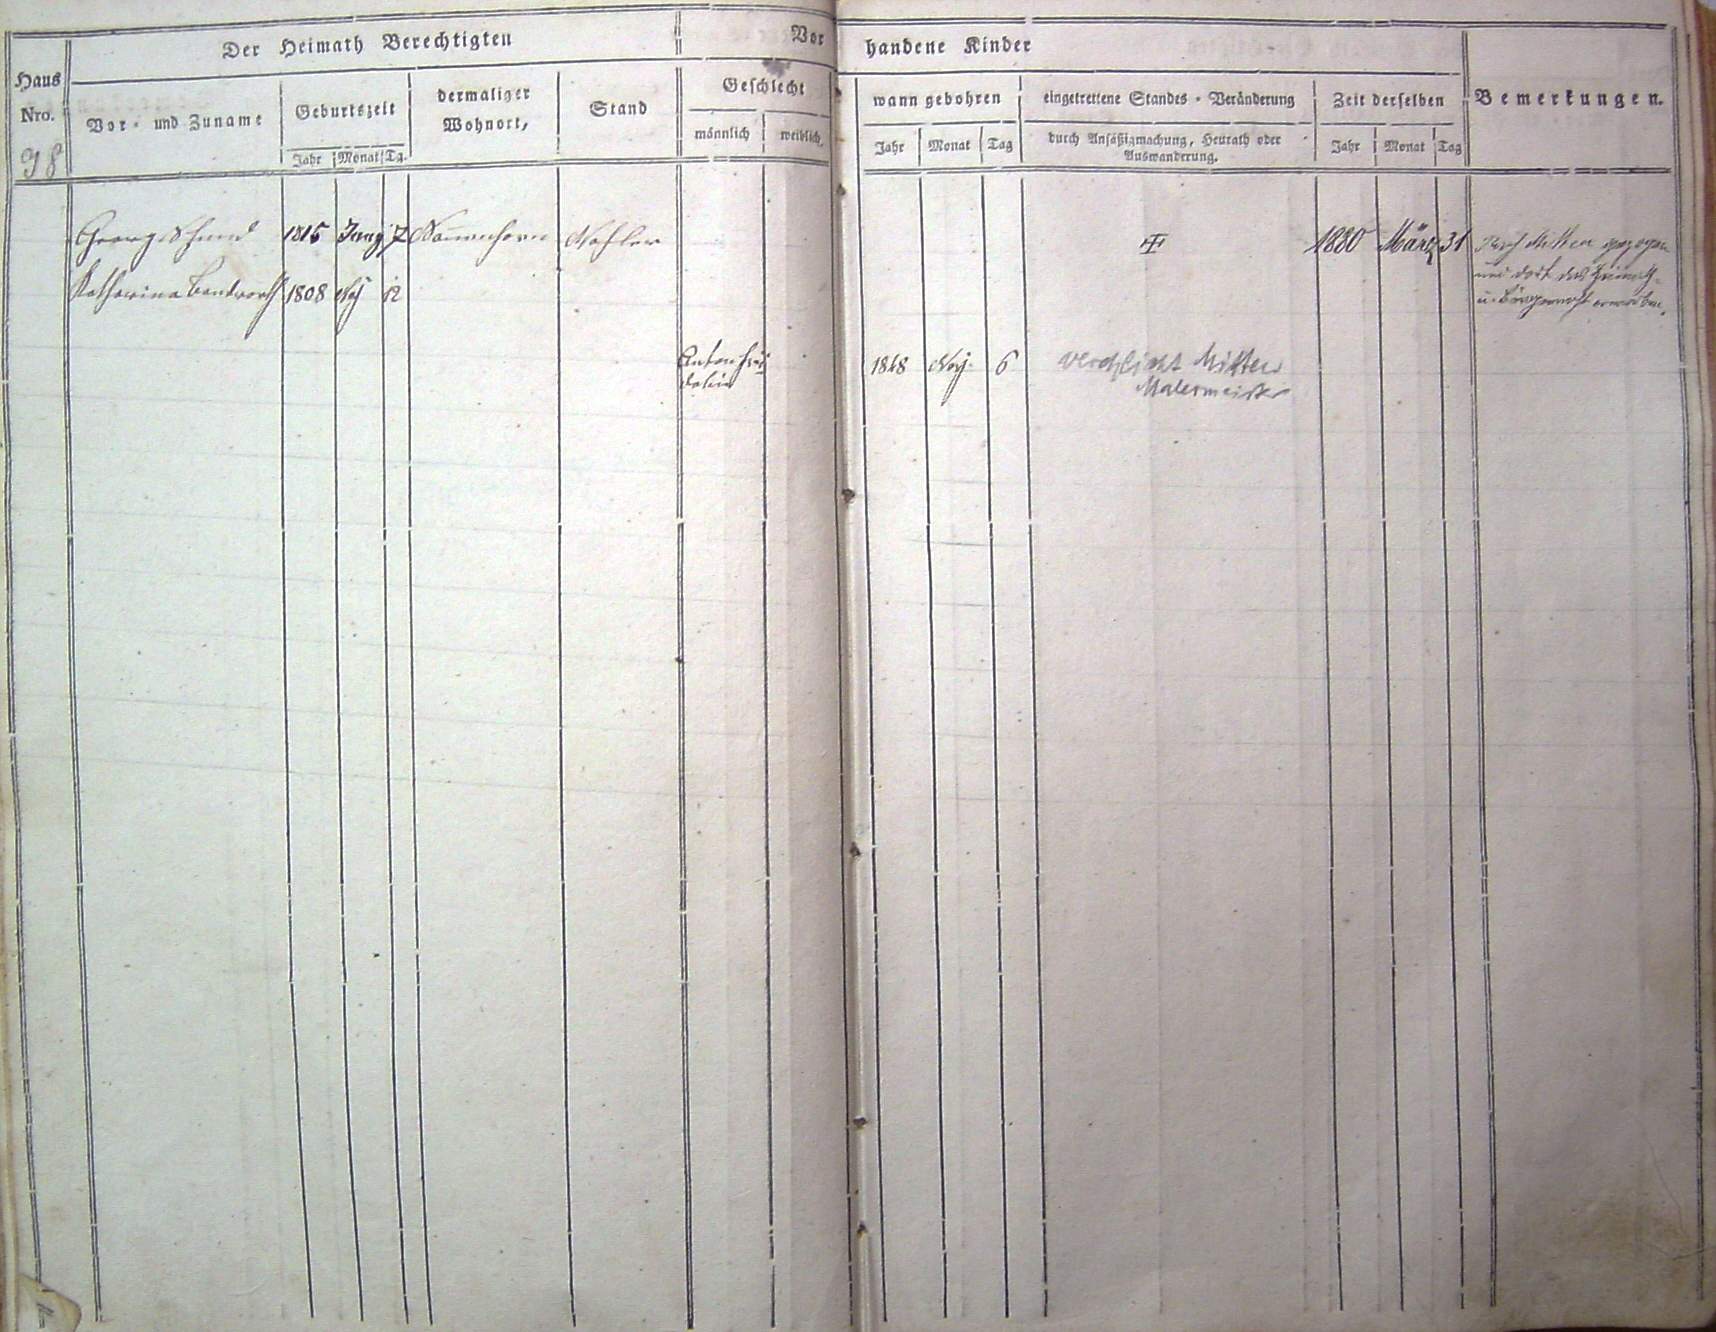 Der Heimath Berechtigten
Vorhandene Kinder
Haus
Nro.
Vor- und Zuname
Geburtszeit
dermaliger
Wohnort,
Stand
Geschlecht
wann gebohren
eingetrettene Standes-Veränderung
Zeit derselben
Bemerkungen.
männlich
weiblich,
Jahr
Monat
Tg.
Jahr
Monat
Tag
durch Ansäßigmachung, Heurath oder
Auswanderung.
Jahr
Monat
Tag
98
Georg 1815 7 Nonnenhorn
1880 März 31
Nach Mitten gezogen
und dort das Heimath-
u. Bürgerrecht erworben.
Katharina 1808
Anton
6
verehlicht Mitten
Malermeister